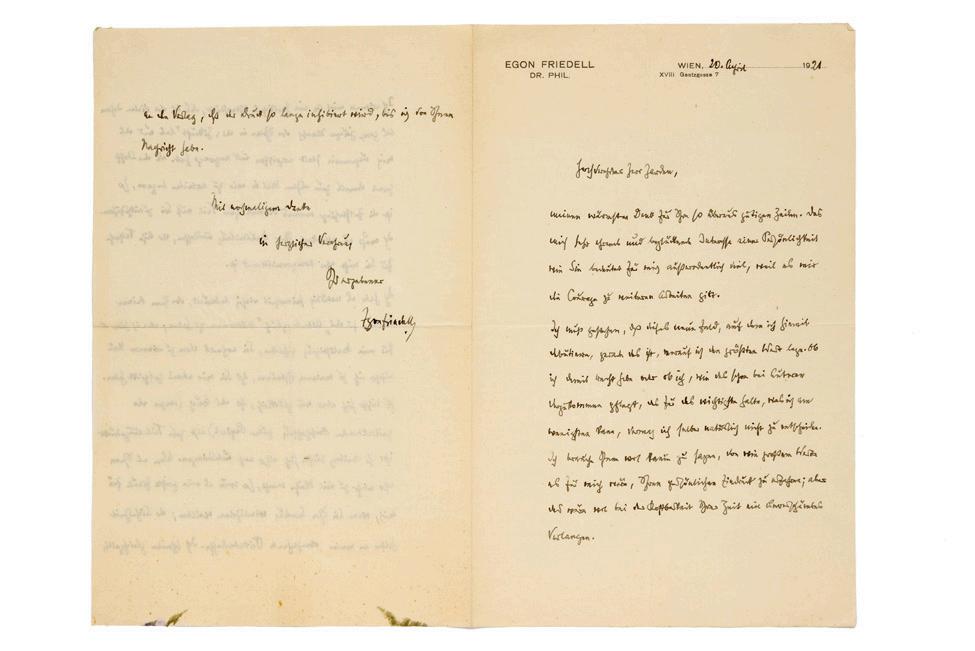 an den Verlag, daß der Druck so lange inhibiert wird, bis ich von Ihnen
Nachricht habe.
Mit nochmaligem Danke
in herzlicher Verehrung
Ihr ergebener
Egon Friedell
EGON FRIEDELL
DR. PHIL.
WIEN, 20. April 1921
XVIII Gentzgasse 7
Hochverehrter Herr Harden,
meinen wärmsten Dank für Ihre so überaus gütigen Zeilen. Das
mich sehr ehrende und beglückende Interesse einer Persönlichkeit
wie Sie bedeutet für mich außerordentlich viel, weil es mir
die Courage zu weiteren Arbeiten gibt.
Ich muß gestehen, daß dieses neue Feld, auf dem ich hiermit
debütiere, gerade das ist, worauf ich den größten Wert lege. Ob
ich damit recht habe oder ob ich, wie das schon bei Autoren
vorzukommen pflegt, das für das wichtigste halte, was ich am
wenigsten kann, vermag ich selber natürlich nicht zu entscheiden.
Ich brauche Ihnen wol kaum zu sagen, von wie großem Werte
es für mich wäre, Ihren persönlichen Eindruck zu erfahren; aber
das wäre wol bei der Kostbarkeit Ihrer Zeit ein unverschämtes
Verlangen.